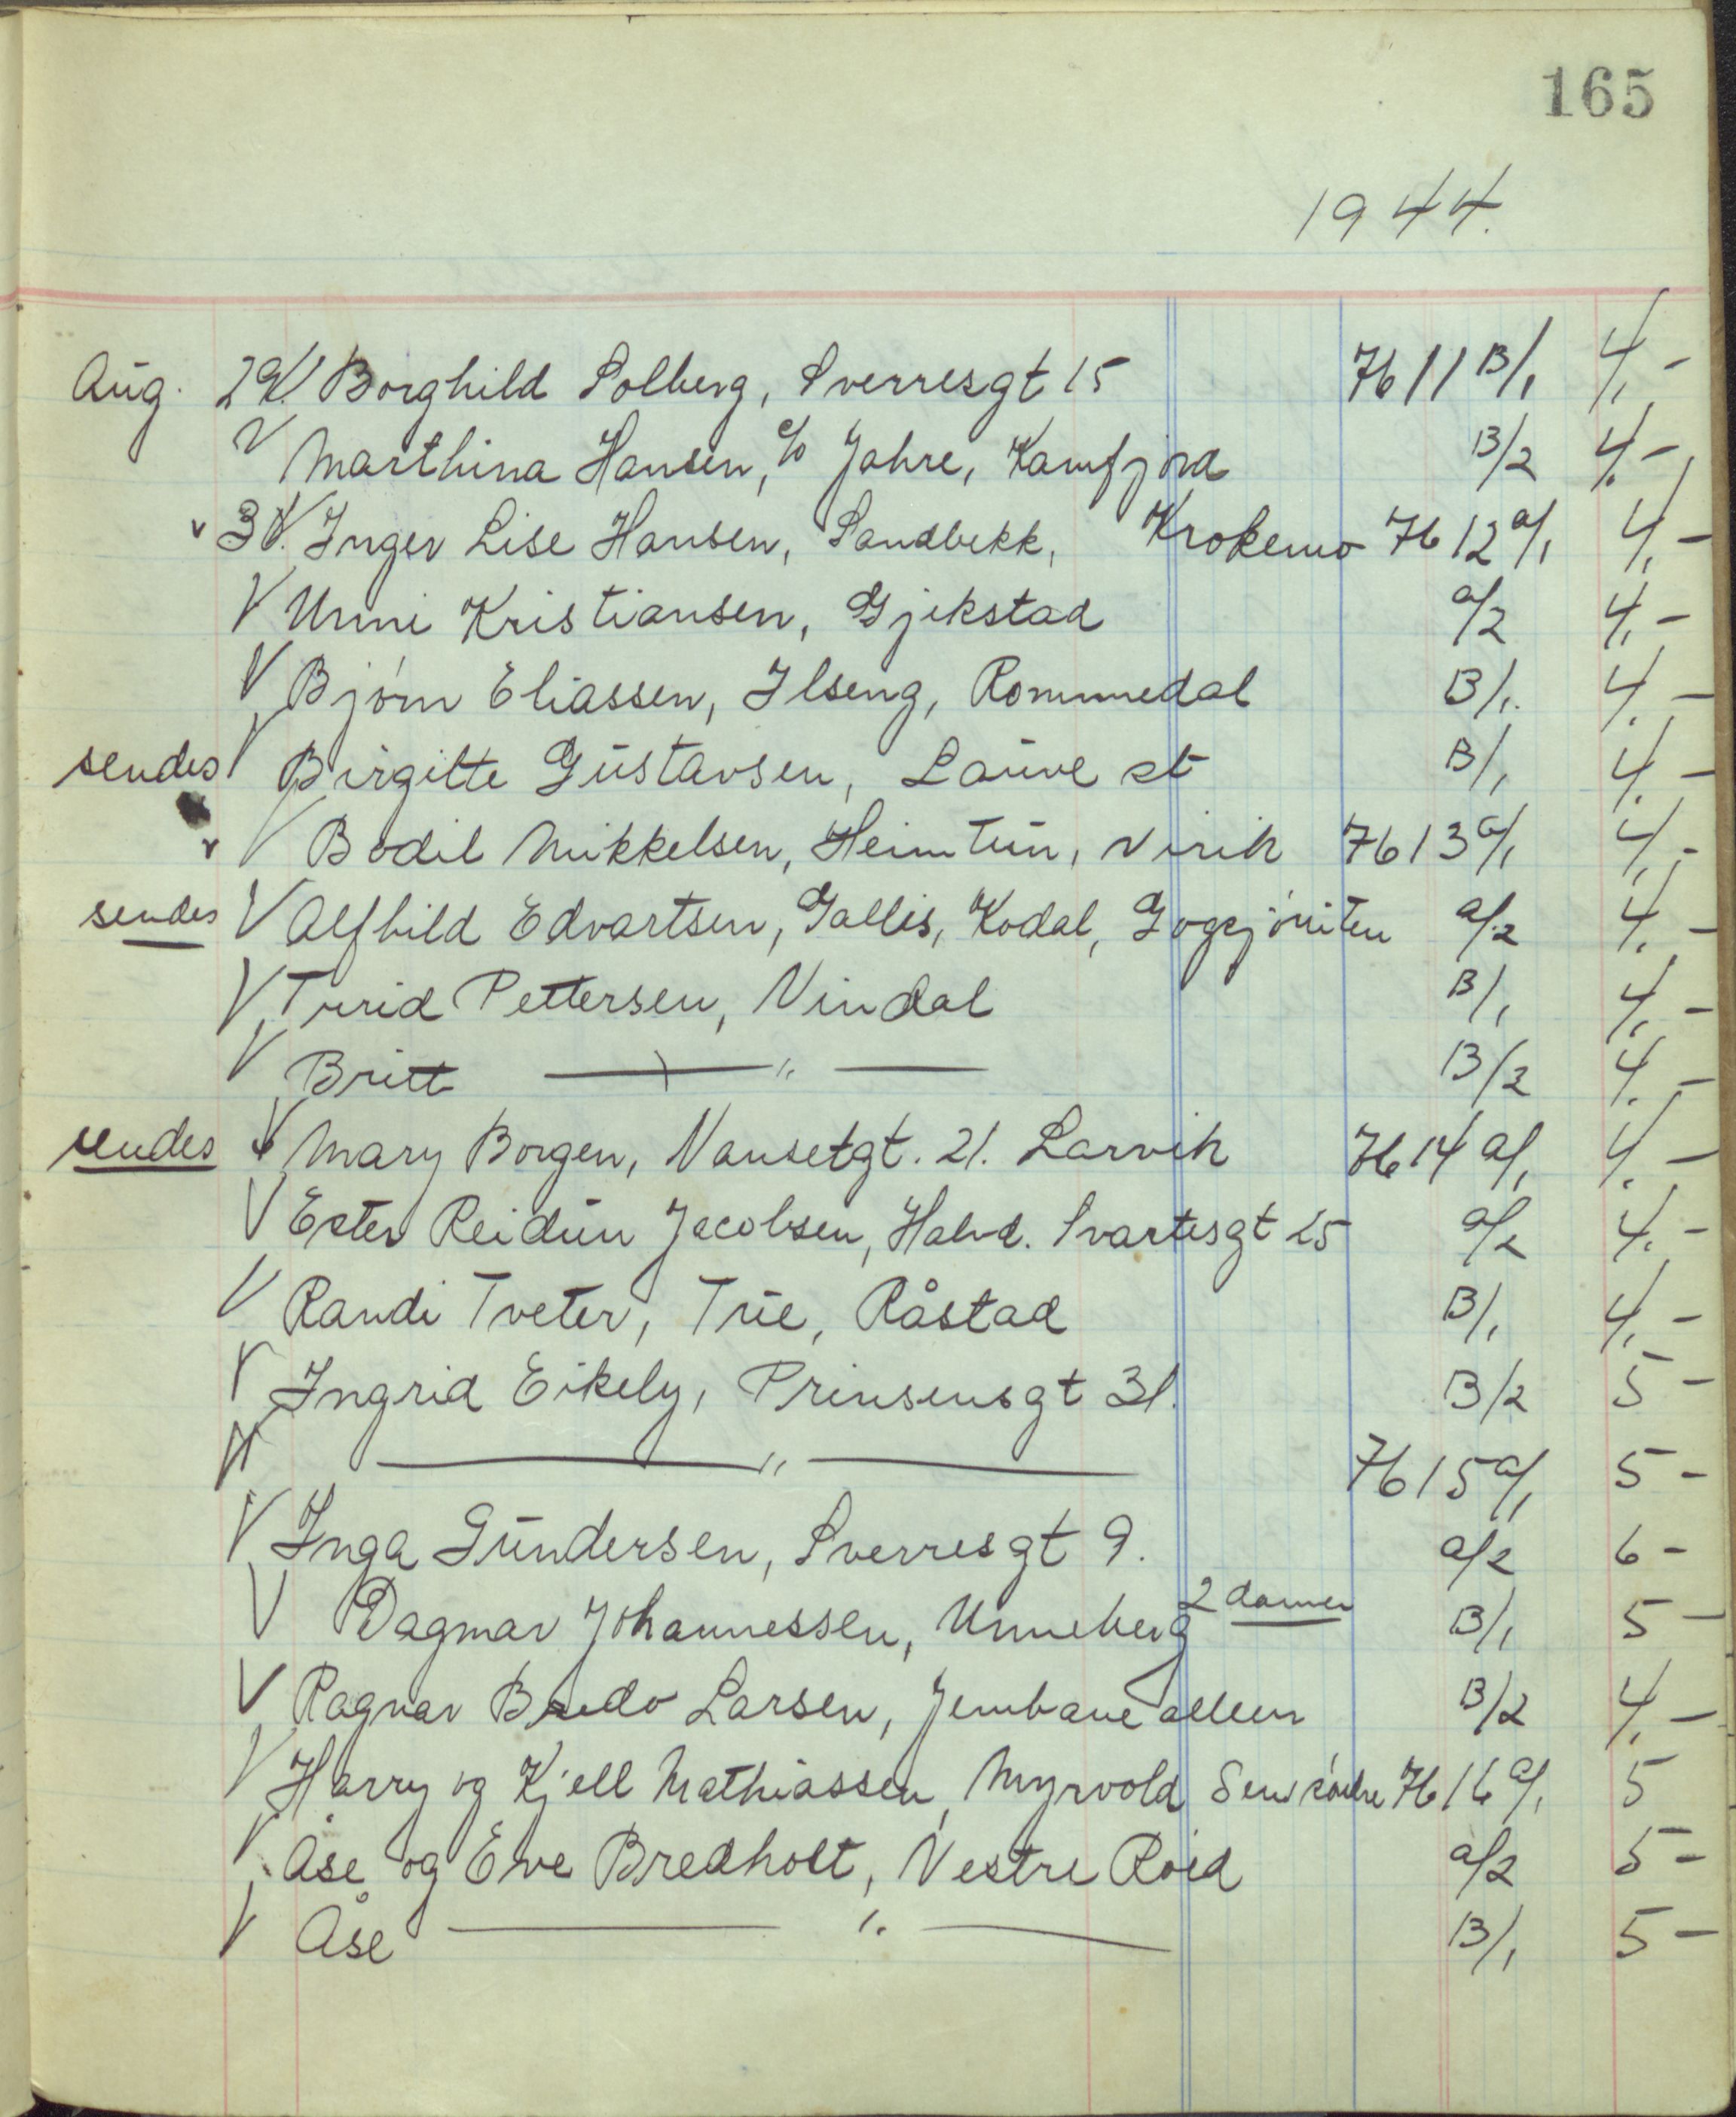 165
1944.
Aug. 29. V Borghild Solberg, Sverresgt 15 7611 B/1 4,-
V Marthina Hansen, c/o Jahre, Kamfjord B/2 4,-
v 30. V Inger Lise Hansen, Sandbekk, Krokemo 7612 a/1 4,-
V Unni Kristiansen, Gjekstad a/2 4,-
V Bjørn Eliassen, Ilseng, Rommedal B/1. 4,-
sendes V Birgitte Gustavsen, Lauve st B/1 4,-
v V Bodil Mikkelsen, Heimtun, Virik 7613 a/1 4,-
sendes V Alfhild Edvartsen, Gallis, Kodal, a/2 4,-
V Turid Pettersen, Vindal B/1 4,-
V Britt —— " —— B/2 4,-
sendes V Mary Borgen, Nansetgt. 21. Larvik 7614 a/1 4,-
V Ester Reidun Jacobsen, Halvd. Svartesgt 25 a/2 4,-
V Randi Tveter, Tue, Råstad B/1 4,-
V Ingrid Eikely, Prinsensgt 31. B/2 5-
V —— " —— 7615 a/1 5-
V Inga Gundersen, Sverresgt 9. a/2 6-
V Dagmar Johannessen, Unneberg 2 damer B/1 5-
V Ragnar Bredo Larsen, Jernbanealleen B/2 4,-
V Harry og Kjell Mathiassen, Myrvold 7616 a/1 5
V Åse og Eve Bredholt, Vestre Roed a/2 5-
V Åse —— " —— B/1 5-